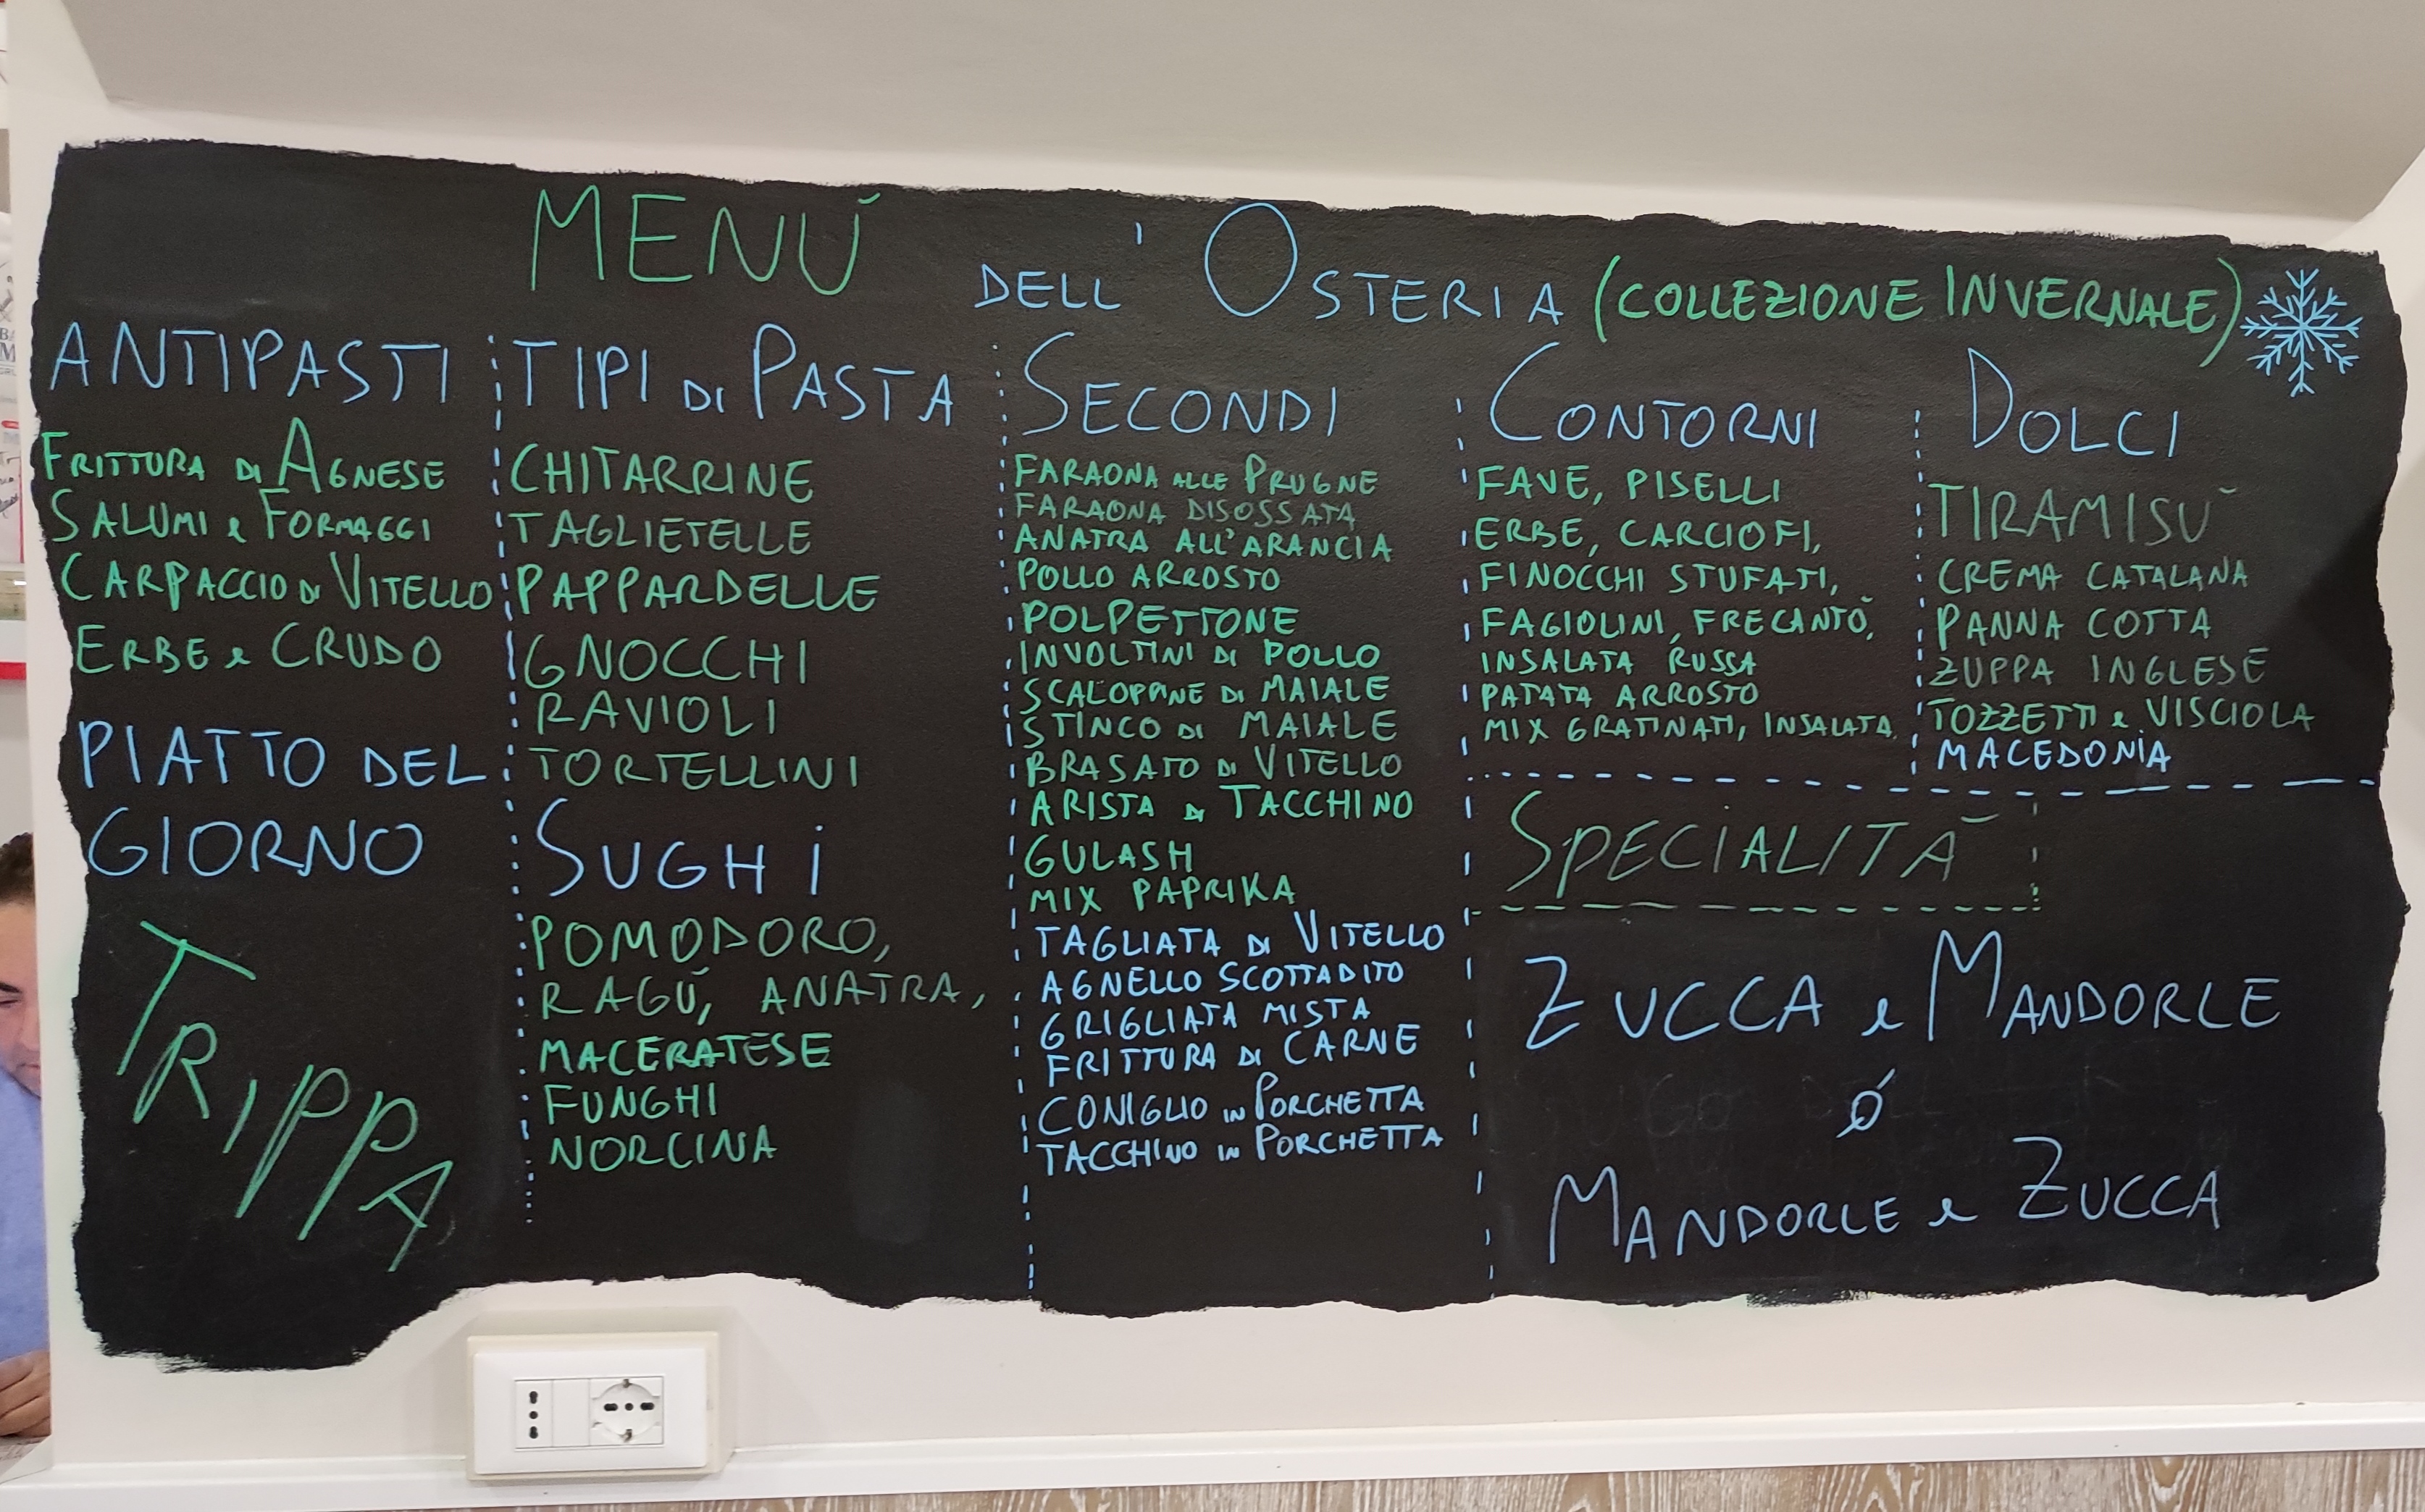 MENÚ DELL'OSTERIA (COLLEZIONE INVERNALE)
ANTIPASTI
FRITTURA DI AGNESE
SALUMI e FORMAGGI
CARPACCIO DI VITELLO
ERBE e CRUDO
PIATTO DEL
GIORNO
TRIPPA
TIPI DI PASTA
CHITARRINE
TAGLIETELLE
PAPPARDELLE
GNOCCHI
RAVIOLI
TORTELLINI
SUGHi
POMODORO,
RAGÚ, ANATRA,
MACERATESE
FUNGHI
NORCINA
SECONDI
FARAONA ALLE PRUGNE
FARAONA DISOSSATA
ANATRA ALL'ARANCIA
POLLO ARROSTO
POLPETTONE
INVOLTINI DI POLLO
SCALOPPINE DI MAIALE
STINCO DI MAIALE
BRASATO DI VITELLO
ARISTA DI TACCHINO
GULASH
MIX PAPRIKA
TAGLIATA DI VITELLO
AGNELLO SCOTTADITO
GRIGLIATA MISTA
FRITTURA DI CARNE
CONIGLIO IN PORCHETTA
TACCHINO IN PORCHETTA
CONTORNI
FAVE, PISELLI
ERBE, CARCIOFI,
FINOCCHI STUFATI,
FAGIOLINI, FRECANTÒ,
INSALATA RUSSA
PATATA ARROSTO
MIX GRATINATI, INSALATA.
DOLCI
TIRAMISÙ
CREMA CATALANA
PANNA COTTA
ZUPPA INGLESE
TOZZETTI e VISCIOLA
MACEDONIA
SPECiALITÀ
ZUCCA e MANDORLE
ó
MANDORLE e ZUCCA